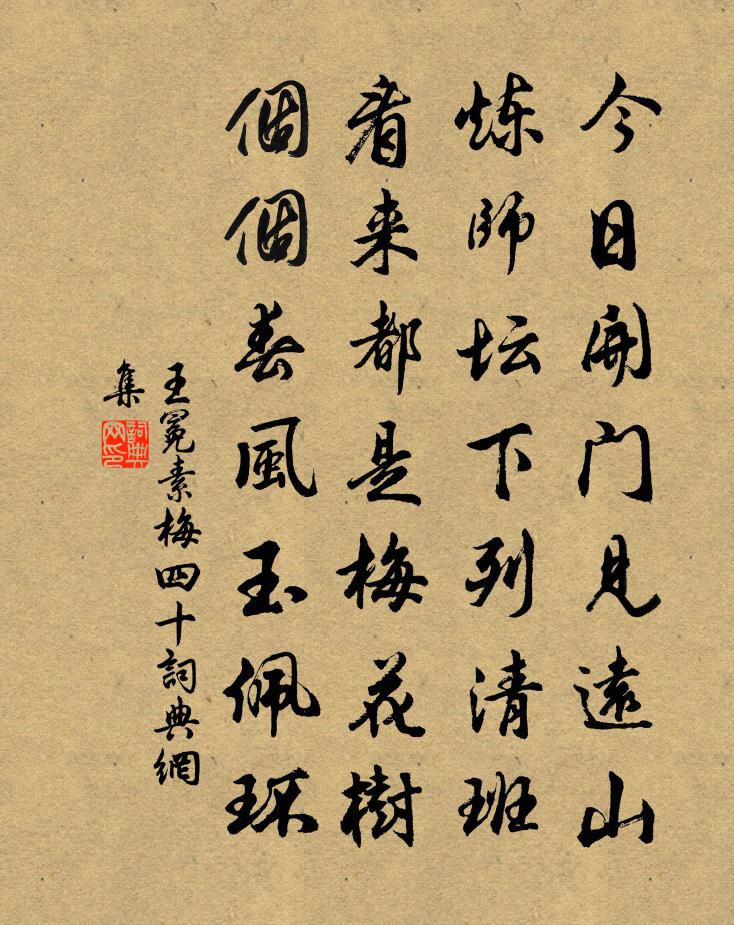 今日開门見遠山
炼師坛下列清班
看来都是梅花樹
個個春風玉佩环
王冕素梅四十詞典網
集
詞典
网印